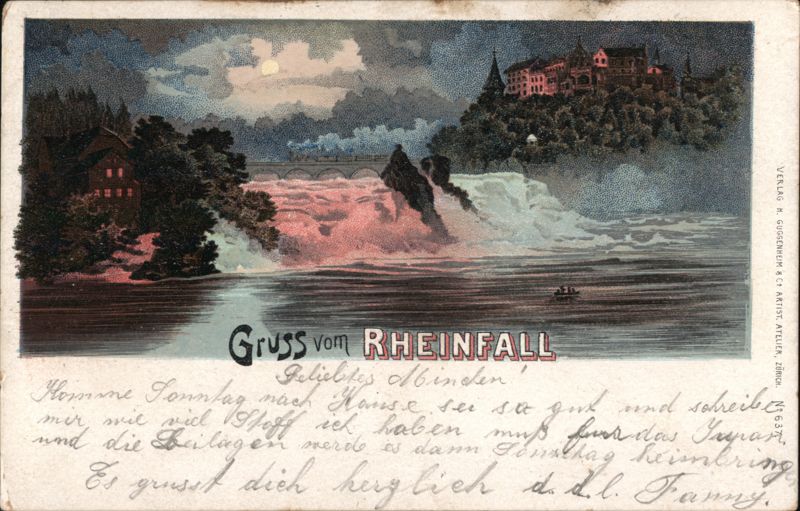 Gruss vom RHEINFALL
Geliebtes Minchen!
Komme Sonntag nach Hause sei so gut und schreibe
mir wie viel Stoff ich haben muß für das
und die Beilagen werde es dann Sonntag heimbringen
Es grusst dich herzlich d. d. l. Fanny.
VERLAG H. GUGGENHEIM & Co ARTIST. ATELIER, ZÜRICH. No 637